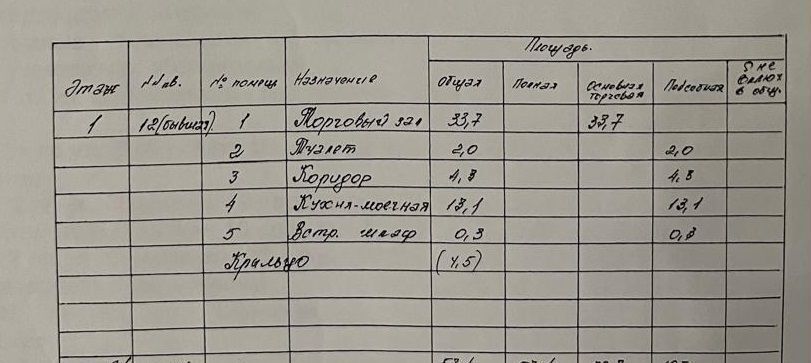 Площадь.
Этаж №№ кв. № помещ Назначение Общая Полная Основная торговая Подсобная S не включ в общ.
1 12(бывшая) 1 Торговый зал 33,7 33,7
2 Туалет 2,0 2,0
3 Коридор 4,3 4,3
4 Кухня-моечная 13,1 13,1
5 Встр. шкаф 0,3 0,3
Крыльцо (4,5)